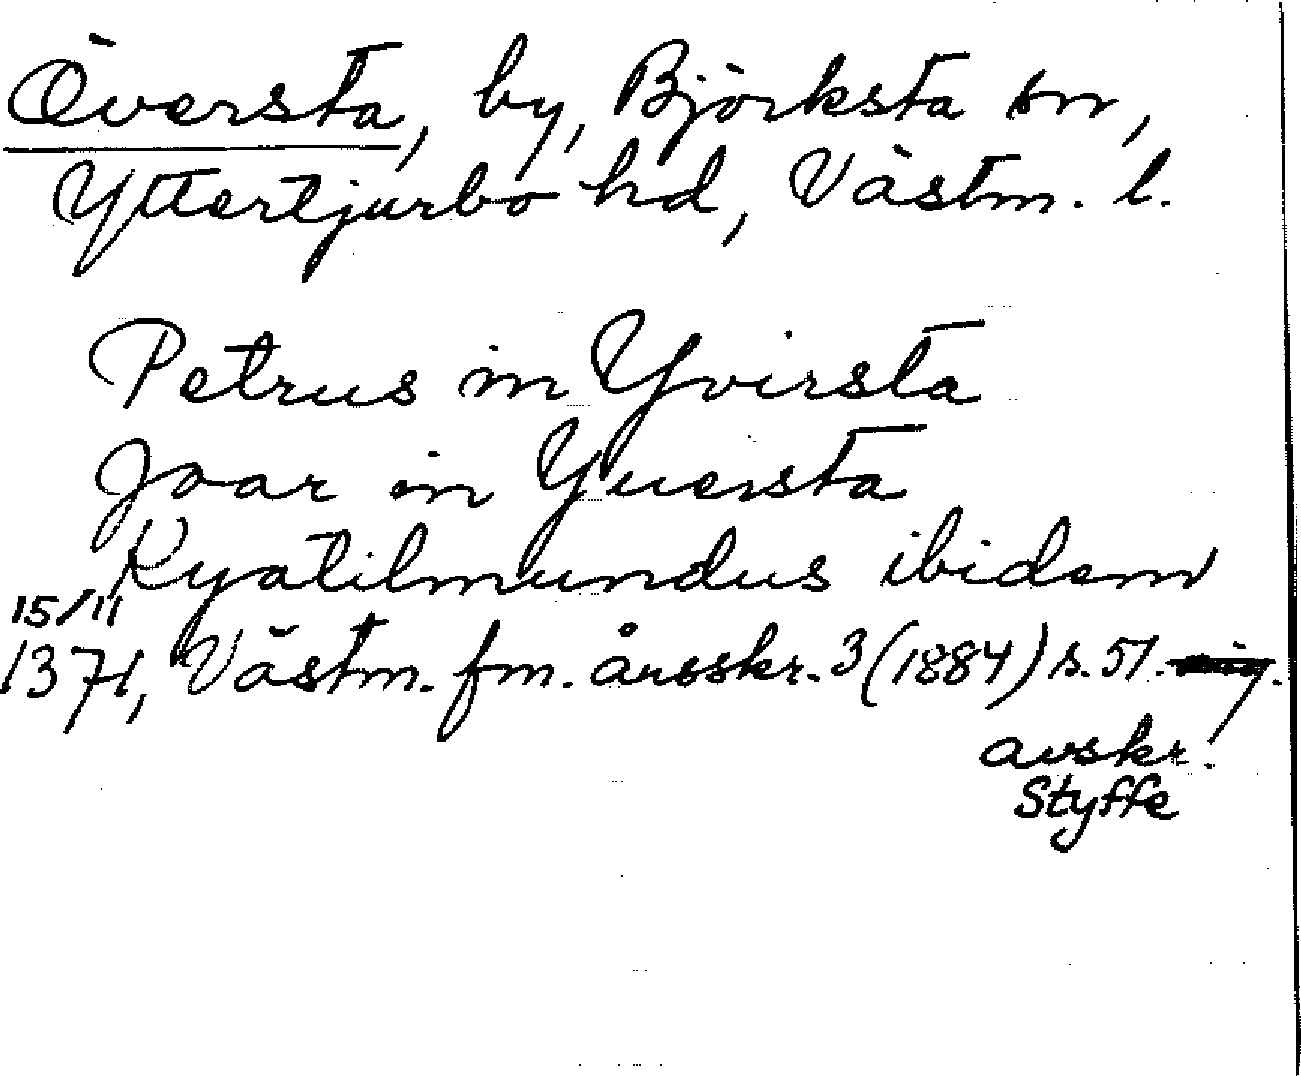 Översta, by, Björksta sn,
Yttertjurbo hd, Västm. l.
Petrus in Yvirsta
Joar in Yuersta
Kyatilmundus ibidem
15/11
1371, Västm. fm. årsskr. 3 (1884) s. 57.
avskr.
Styffe